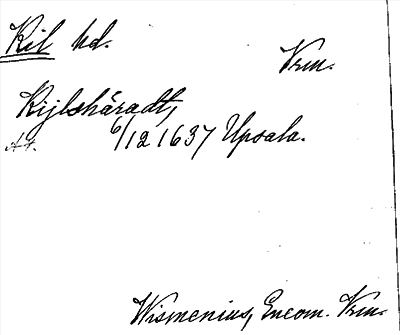 Kil hd.
Vrm.
Kijlshäradt,
6/12 1637 Upsala.
Wismenius, Encom. Vrm.